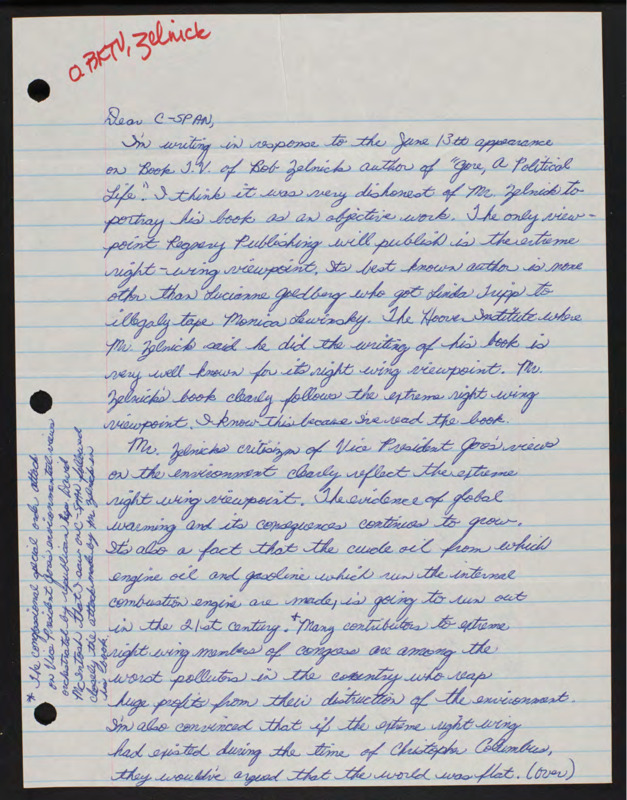 Q BKTV, Zelnick
Dear C-SPAN,
I'm writing in response to the June 13th appearance
on Book T.V. of Bob Zelnick author of "Gore, A Political
Life". I think it was very dishonest of Mr. Zelnick to
portray his book as an objective work. The only view-
point Regnery Publishing will publish is the extreme
right-wing viewpoint. Its best known author is none
other than Lucianne Goldberg who got Linda Tripp to
illegaly tape Monica Lewinsky. The Hoover Institute where
Mr. Zelnick said he did the writing of his book is
very well known for its right wing viewpoint. Mr.
Zelnick's book clearly follows the extreme right wing
viewpoint. I know this becase I've read the book.
Mr. Zelnicks criticizm of Vice President Gore's views
on the environment clearly reflect the extreme
right wing viewpoint. The evidence of global
warming and its consequences continues to grow.
It's also a fact that the crude oil from which
engine oil and gasoline which run the internal
combustion engine are made, is going to run out
in the 21st century.* Many contributors to extreme
right wing members of congress are among the
worst pollutors in the country who reap
huge profits from their distruction of the environment.
I'm also convinced that if the extreme right wing
had existed during the time of Christopher Columbus,
they would've argued that the world was flat. (over)
* The congressional special order attack
on Vice President Gore environmental views
orchestrated by republican David
McIntosh that I saw on C-SPAN followed
closely the attack made by Mr. Zelnick in
his book.